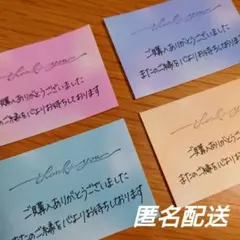 thank you
ご購入ありがとうございました
またのご縁を心よりお待ちしております
thank you
ご購入ありがとうございました
またのご縁を心よりお待ちしております
thank you
ご購入ありがとうございました
またのご縁を心よりお待ちしております
thank you
ご購入ありがとうございました
またのご縁を心よりお待ちしております
匿名配送